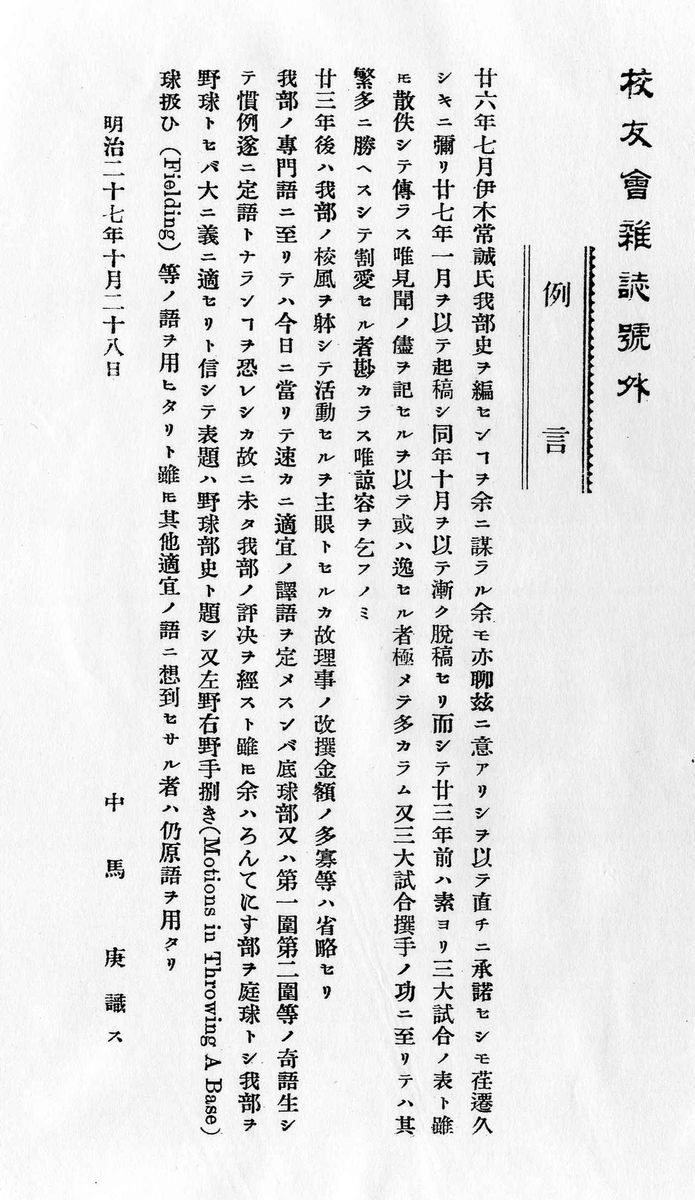 校友會雜誌號外
例言
廿六年七月伊木常誠氏我部史ヲ編センヿヲ余ニ謀ラル余モ亦聊玆ニ意アリシヲ以テ直チニ承諾セシモ荏遷久
シキニ彌リ廿七年一月ヲ以テ起稿シ同年十月ヲ以テ漸ク脫稿セリ而シテ廿三年前ハ素ヨリ三大試合ノ表ト雖
𪜈散佚シテ傳ラス唯見聞ノ儘ヲ記セルヲ以ラ或ハ逸セル者極メテ多カラム又三大試合撰手ノ功ニ至リテハ其
繁多ニ勝ヘスシテ割愛セル者尠カラス唯諒容ヲ乞フノミ
廿三年後ハ我部ノ校風ヲ躰シテ活動セルヲ主眼トセルカ故理事ノ改撰金額ノ多寡等ハ省略セリ
我部ノ專門語ニ至リテハ今日ニ當リテ速カニ適宜ノ譯語ヲ定メスンバ底球部又ハ第一圍第二圍等ノ奇語生シ
テ慣例遂ニ定語トナランヿヲ恐レシカ故ニ未タ我部ノ評決ヲ經スト雖𪜈余ハろんてにす部ヲ庭球トシ我部ヲ
野球トセバ大ニ義ニ適セリト信シテ表題ハ野球部史ト題シ又左野右野手捌き(Motions in Throwing A Base)
球扱ひ (Fielding) 等ノ語ヲ用ヒタリト雖𪜈其他適宜ノ語ニ想到セサル者ハ仍原語ヲ用タリ
明治二十七年十月二十八日
中馬庚識ス